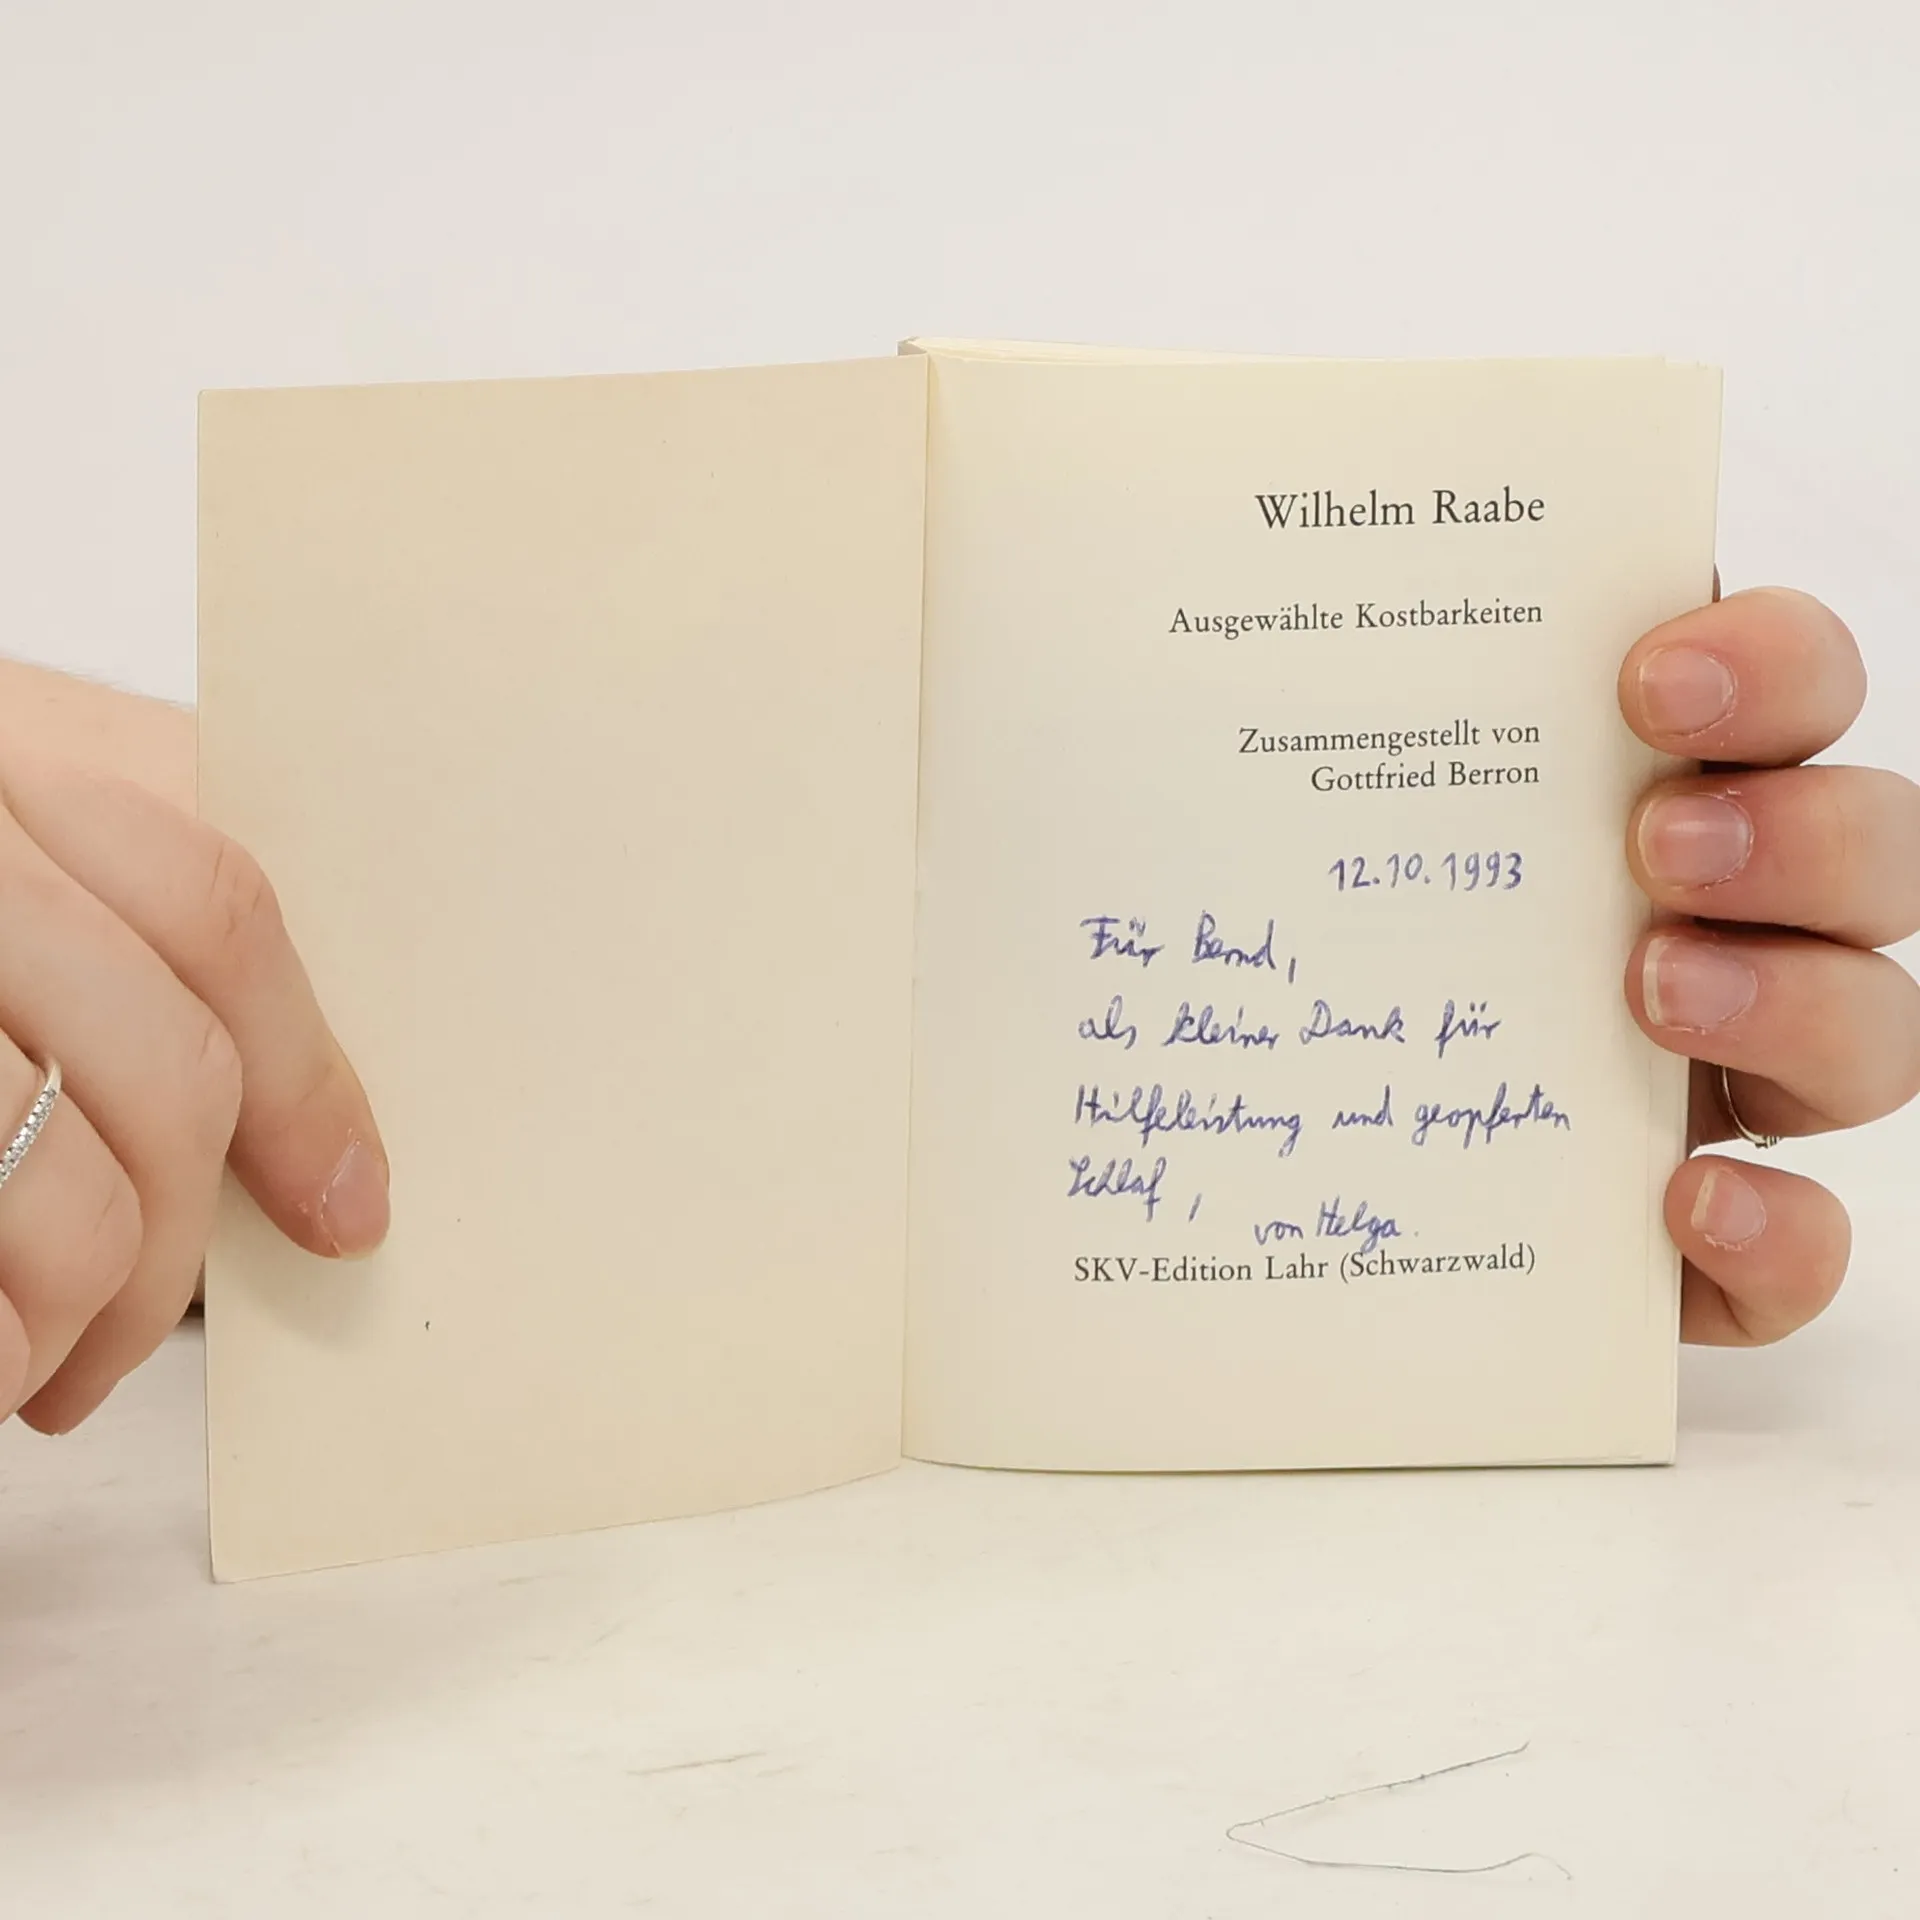 Wilhelm Raabe
Ausgewählte Kostbarkeiten
Zusammengestellt von
Gottfried Berron
12.10.1993
Für Bernd,
als kleiner Dank für
Hilfeleistung und geopferten
Schlaf,
von Helga.
SKV-Edition Lahr (Schwarzwald)